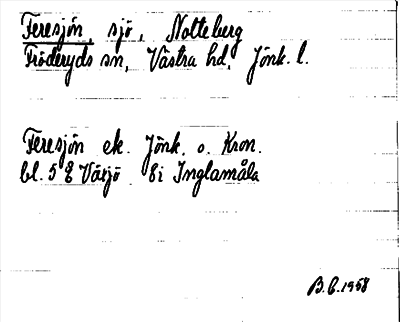 Feresjön, sjö, Notteberg
Fröderyds sn, Västra hd, Jönk. l.
Feresjön ek. Jönk. o. Kron.
bl. 5 g Växjö 8i Inglamåla
B.C. 1958